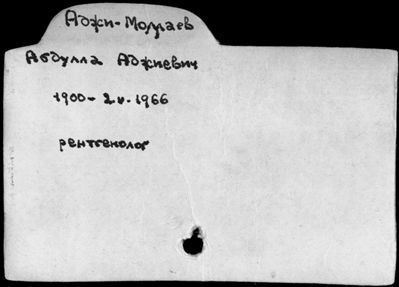 Аджи-Моллаев
Абдулла Аджиевич
1900 - 2.V.1966
рентгенолог